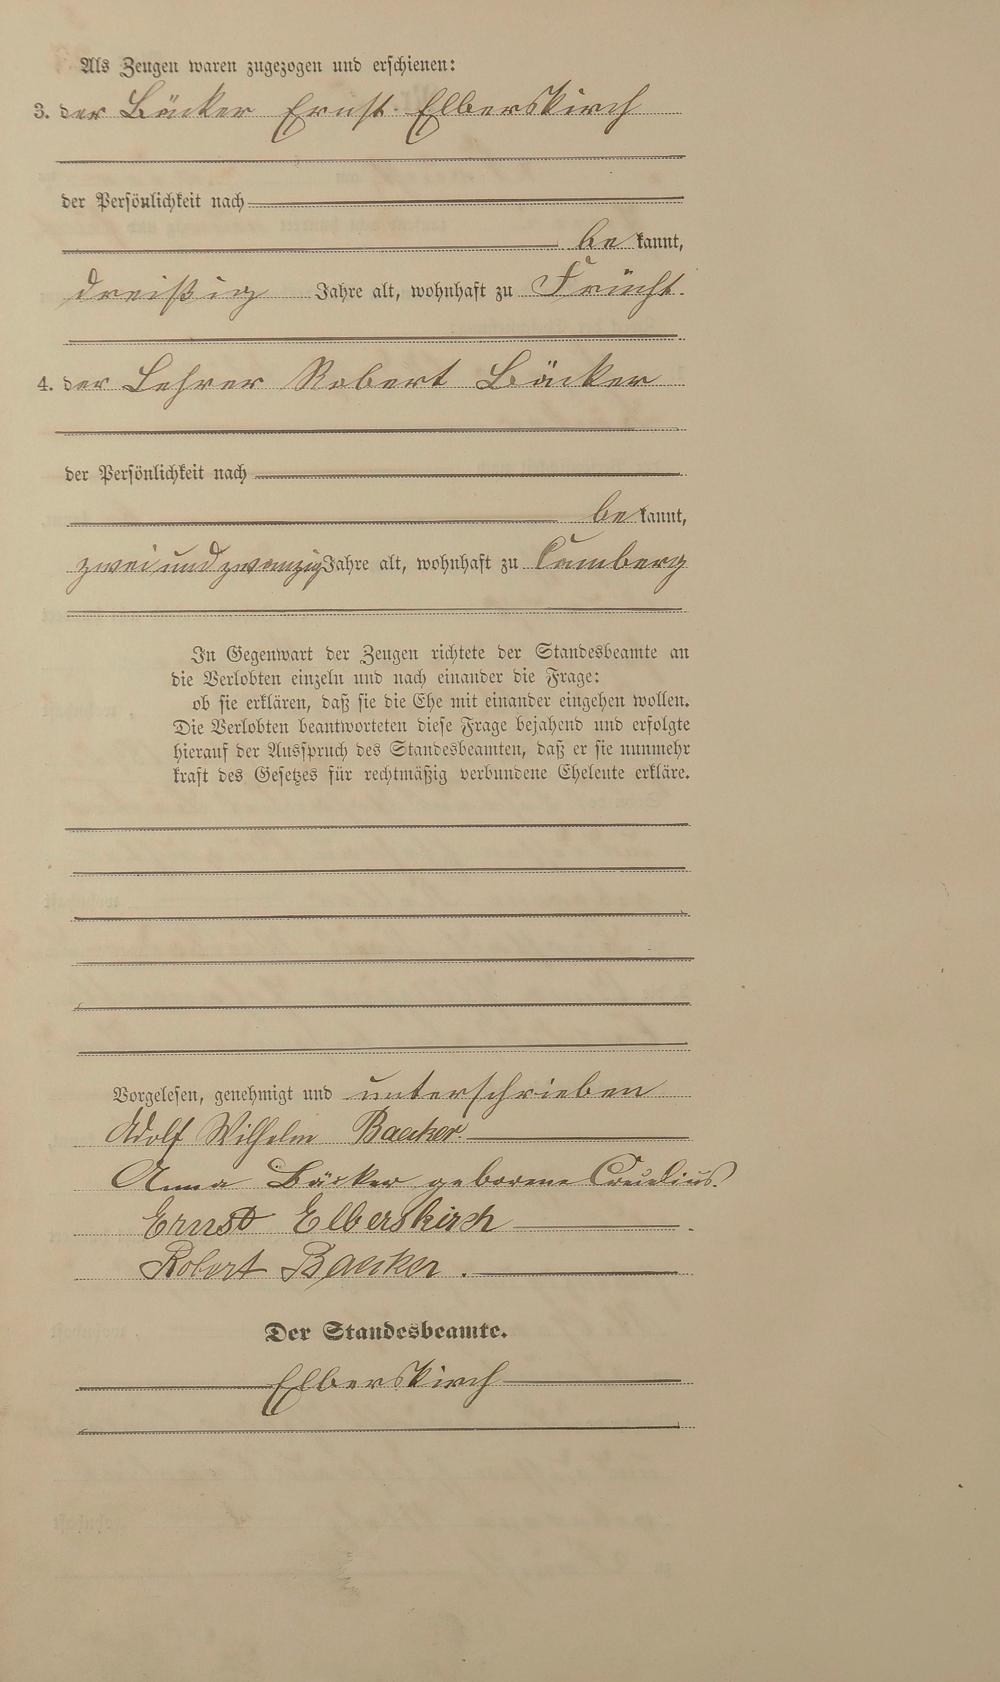 Als Zeugen waren zugezogen und erschienen:
3. der Bäcker Ernst Elberskirch
der Persönlichkeit nach
be kannt,
dreißig Jahre alt, wohnhaft zu Frücht.
4. der Lehrer Robert Bäcker
der Persönlichkeit nach
be kannt,
zwei und zwanzig Jahre alt, wohnhaft zu Cumberg
In Gegenwart der Zeugen richtete der Standesbeamte an
die Verlobten einzeln und nach einander die Frage:
ob sie erklären, daß sie die Ehe mit einander eingehen wollen.
Die Verlobten beantworteten diese Frage bejahend und erfolgte
hierauf der Ausspruch des Standesbeamten, daß er sie nunmehr
kraft des Gesetzes für rechtmäßig verbundene Eheleute erkläre.
Vorgelesen, genehmigt und unterschrieben
Adolf Wilhelm Baecker.
Anna Bäcker geborene Creuelius.
Ernst Elberskirch
Robert Baecker.
Der Standesbeamte.
Elberskirch